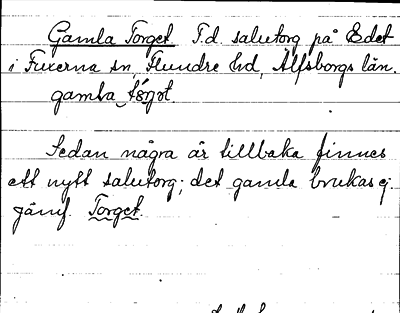 Gamla Torget T.d. salutorg på Edet
i Fuxerna sn, Flundre hd, Älfsborgs län.
gamla
Sedan några år tillbaka finnes
ett nytt salutorg; det gamla brukas ej.
jämf. Torget.